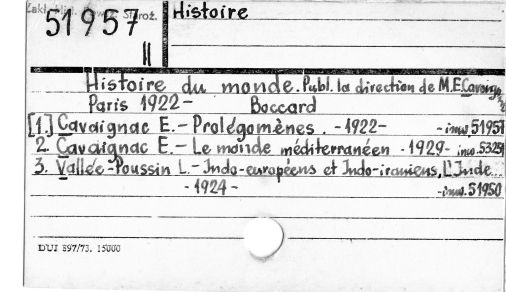 51957
II
Histoire
Histoire du monde. Publ. la direction de M.E.
Paris 1922- Boccard
[1.] Cavaignac E. - Prolégomènes. -1922- -inw. 51957
2. Cavaignac E. - Le monde méditerranéen -1929- inw. 5325
3. Vallée-Poussin L. - Indo-européens et Indo-iraniens, L'Inde...
-1924- -inw. 51950
DUJ 897/73. 15000